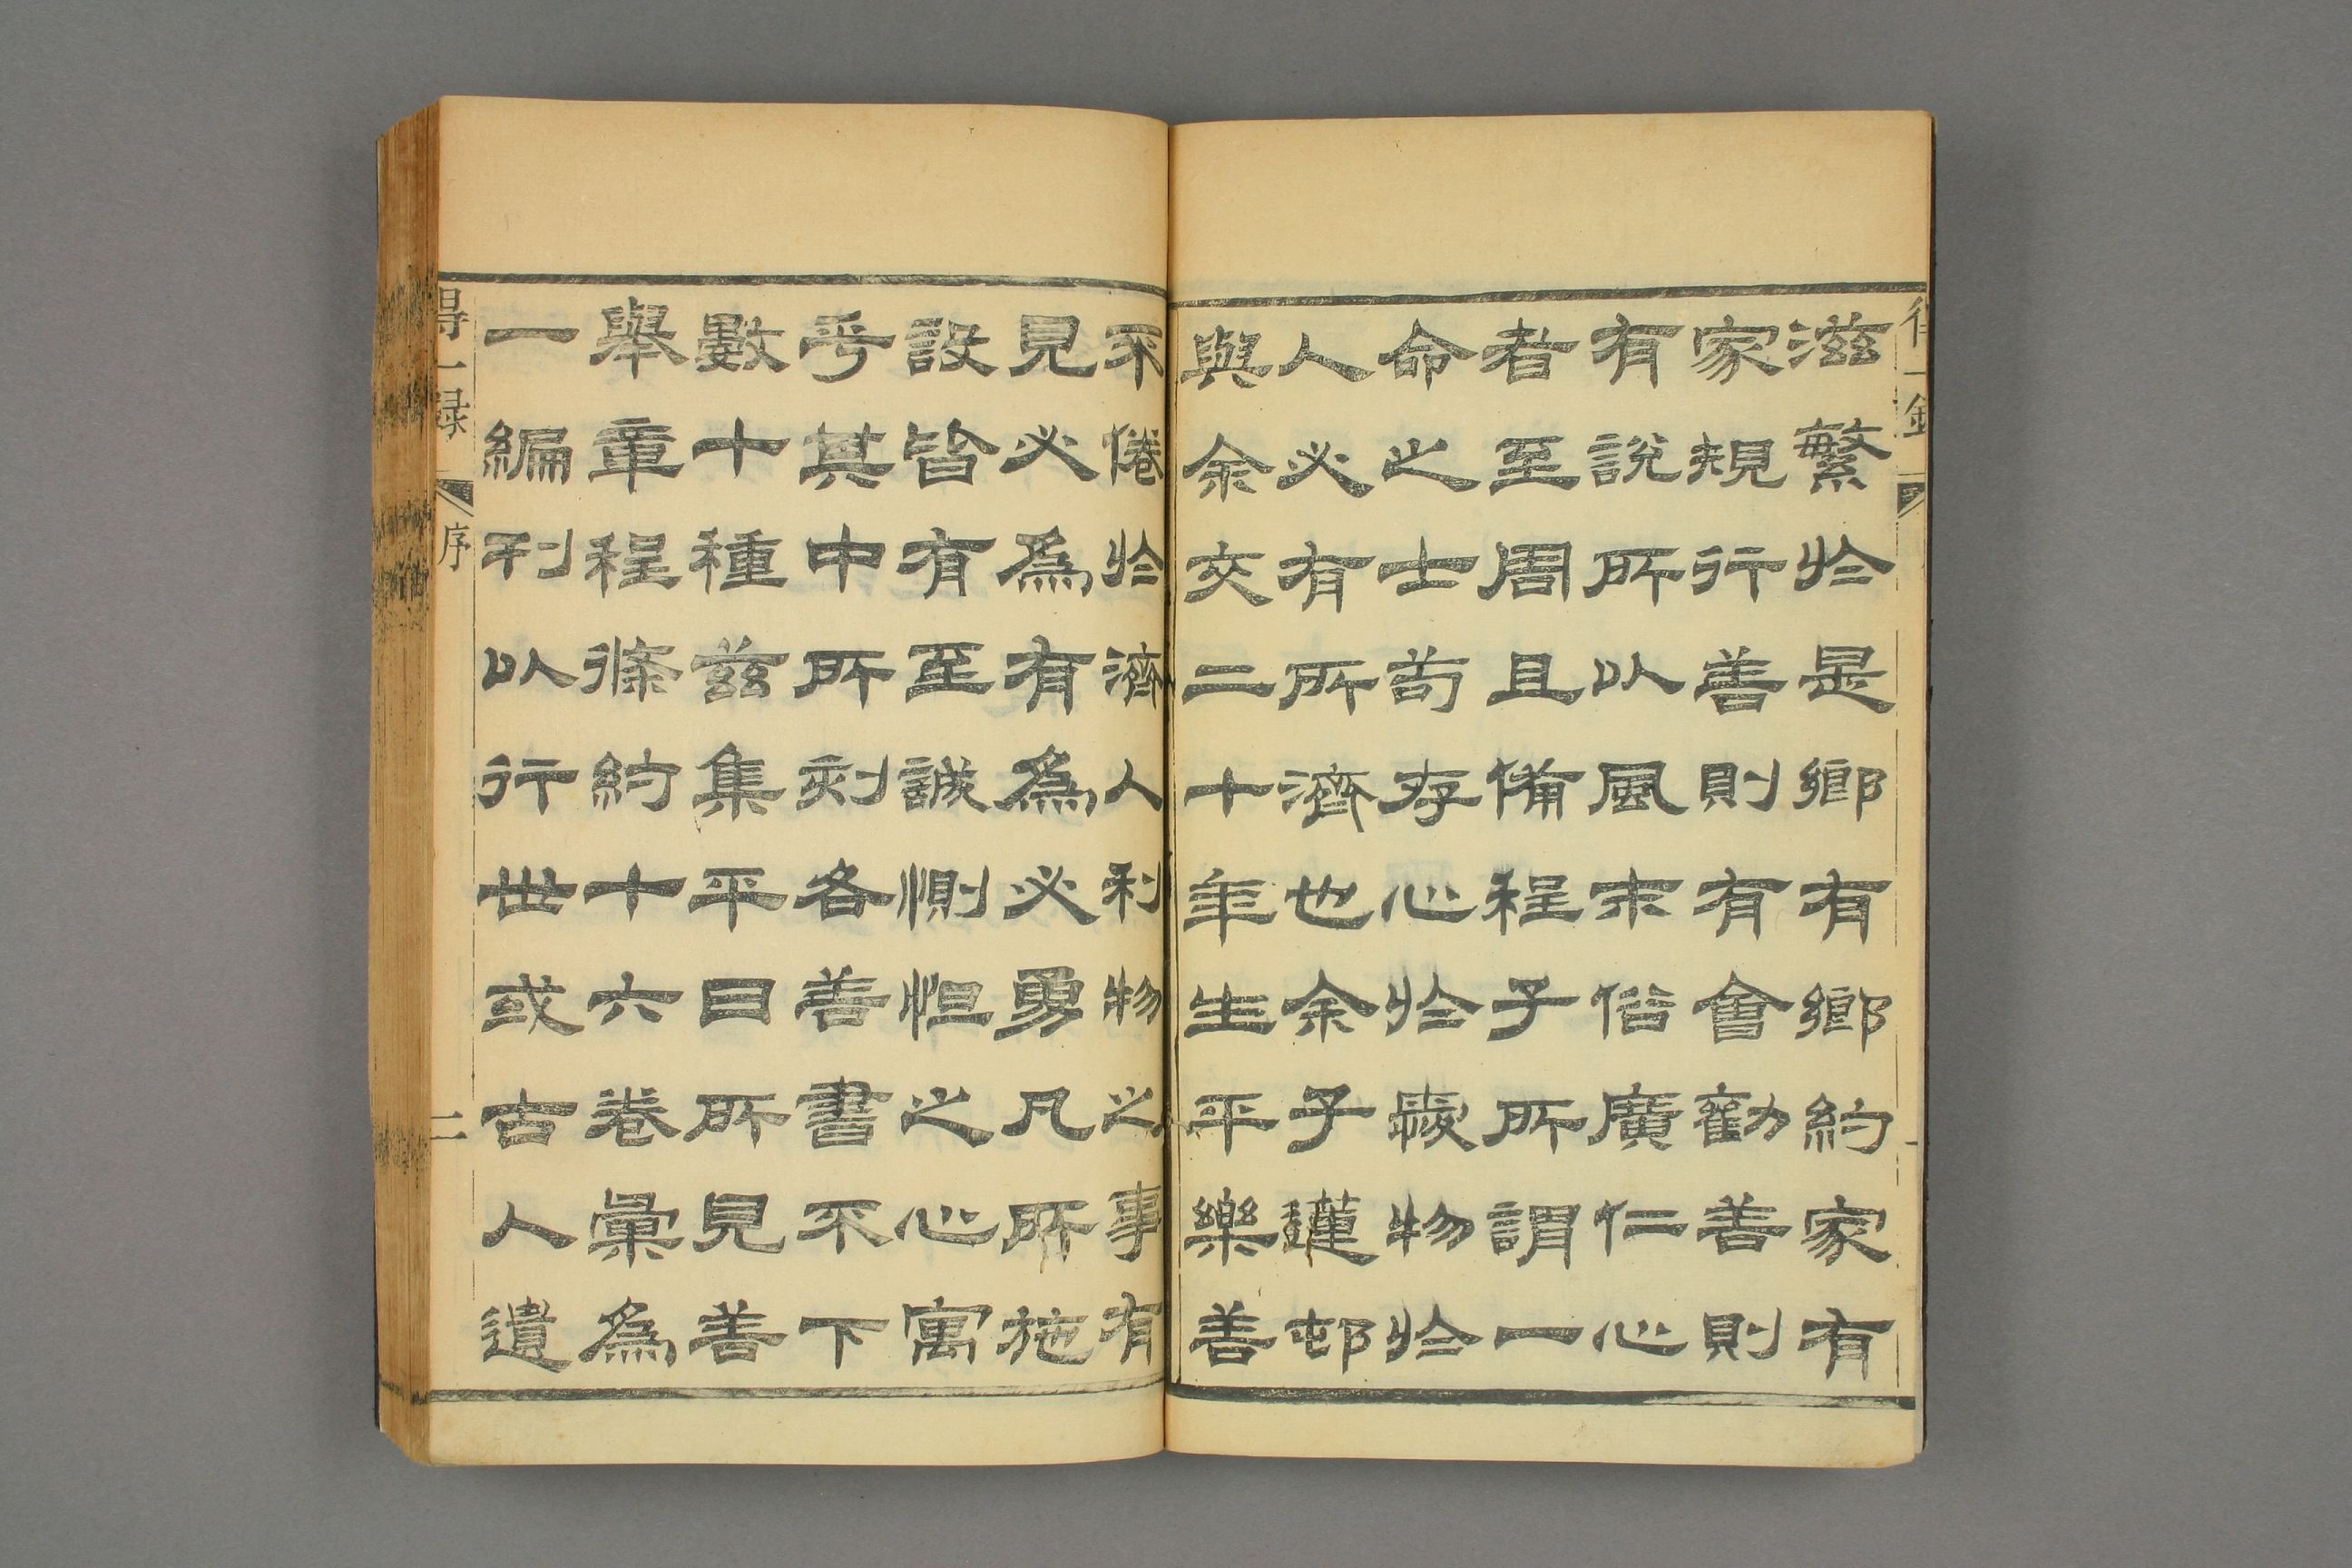 滋繁於是鄉有鄉約家有
家規行善則有會勸善則
有說所以風末俗廣仁心
者至周且備程子所謂一
命之士苟存心於愛物於
人必有所濟也余子蓮邨
與余交二十年生平樂善
不倦於濟人利物之事有
見必為有為必勇凡所施
設皆有至誠惻怛之心寓
乎其中所刻各善書不下
數十種茲集平日所見善
舉章程條約十六卷彙為
一編刊以行世或古人遺
得一錄
序
二